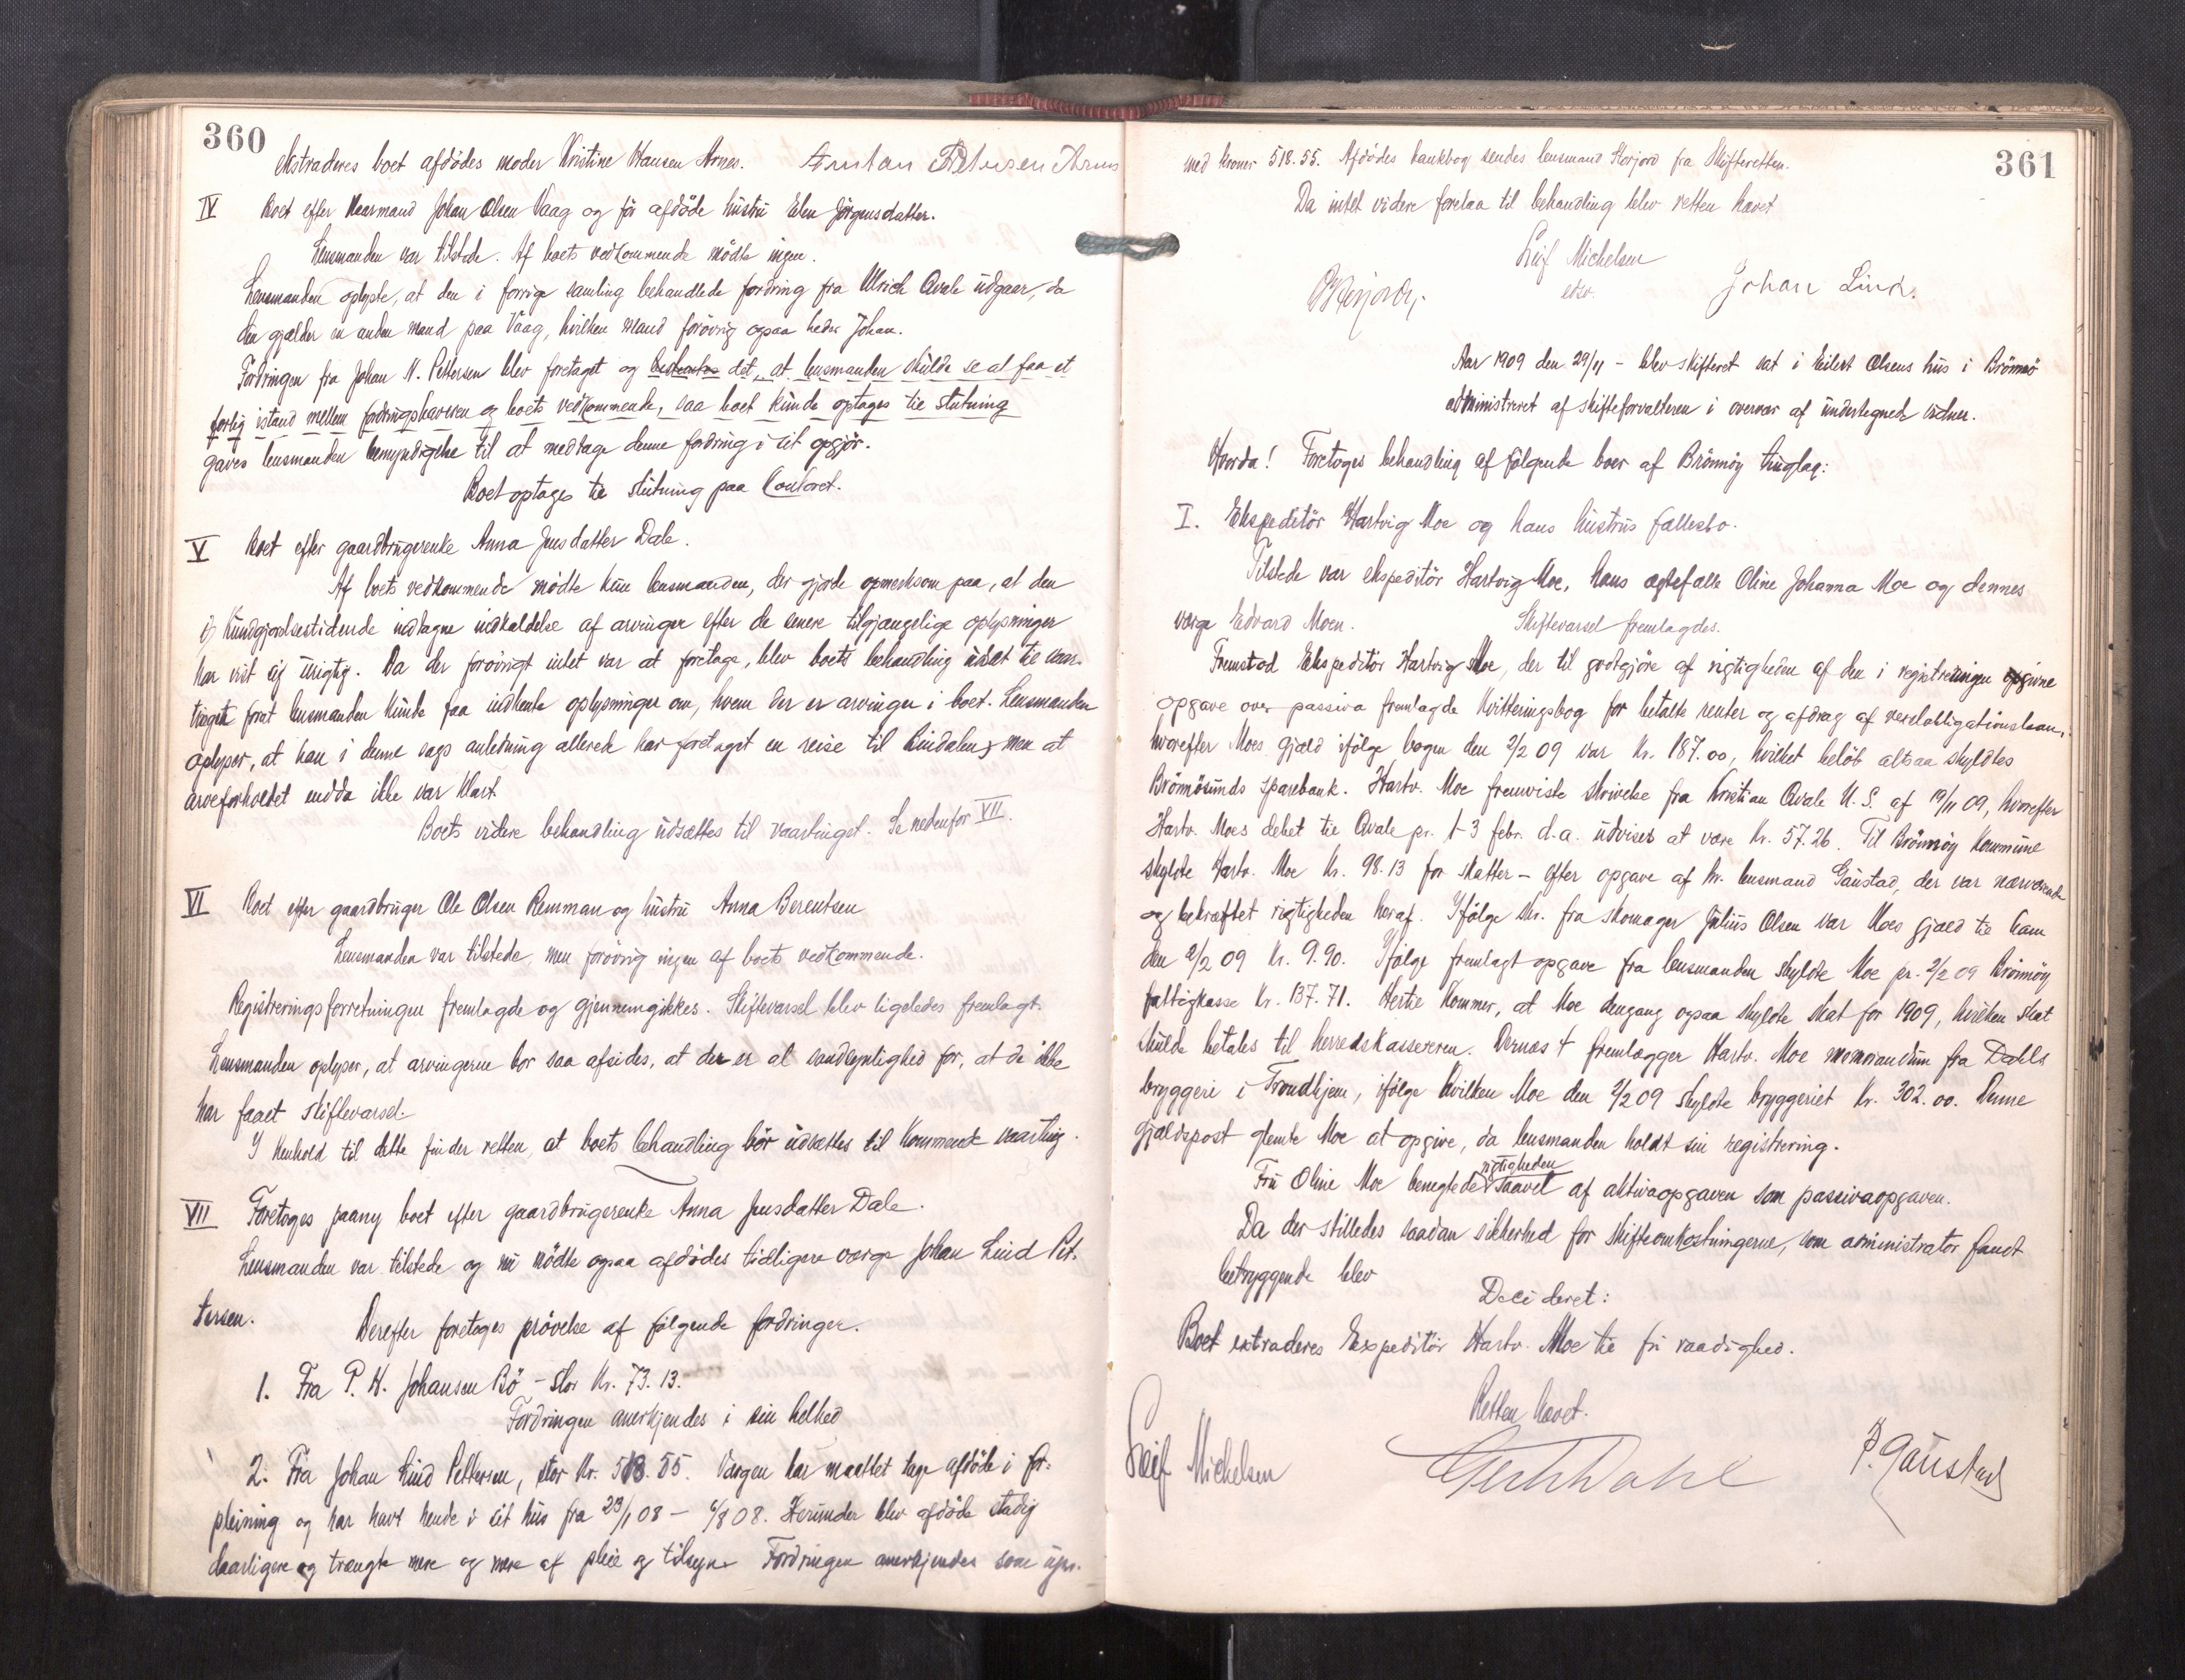 360
ekstraderes boet afdödes moder Kristine Hansen Arnes. Anton Petersen Arnes
IV Boet efter Kaarmand Johan Olsen Vaag og før afdöde hustru Elen Jörgensdatter.
Lensmanden var tilstede. Af boets vedkommende mödte ingen.
Lensmanden oplyste, at den i forrige samling behandlede fordring fra Ulrich Qvale udgaar, da
den gjælder en anden mand paa Vaag, hvilken mand forövrig ogsaa heder Johan.
Fordringen fra Johan N. Pettersen blev foretaget og bestemtes det, at lensmanden skulde se at faa et
forlig istand mellem fordringshaveren og boets vedkommende, saa boet kunde optages til slutning
gaves lensmanden bemyndigelse til at medtage denne fordring i sit opgjör.
Boet optages til slutning paa Contoret.
V Boet efter gaardbrugerenke Anna Jensdatter Dale.
Af boets vedkommende mödte kun lensmanden, der gjorde opmerksom paa, at den
i Kundgjørelsestidende indtagne indkaldelse af arvinger efter de senere tilgjængelige oplysninger
har vist sig urigtig. Da der forövrigt intet var at foretage, blev boets behandling udsat til vaar-
tinget forat lensmanden kunde faa indhente oplysninger om, hvem der er arvinger i boet. Lensmanden
oplyser, at han i denne sags anledning allerede har foretaget en reise til Lindalen, men at
arveforholdet endda ikke var klart.
Boets videre behandling udsættes til vaartinget. Se nedenfor VII.
VI Boet efter gaardbruger Ole Olsen Remman og hustru Anna Berentsen
Lensmanden var tilstede, men forövrig ingen af boets vedkommende.
Registreringsforretningen fremlagde og gjennemgikkes. Skiftevarsel blev ligeledes fremlagt.
Lensmanden oplyser, at arvingerne bor saa afsides, at der er al sandsynlighed for, at de ikke
har faaet skiftevarsel.
I Henhold til dette finder retten, at boets behandling bör udsættes til kommende vaarting.
VII Foretoges paany boet efter gaardbrugerenke Anna Jensdatter Dale.
Lensmanden var tilstede og nu mödte ogsaa afdödes tidligere værge Johan Lind Pet-
tersen. Derefter foretoges prövelse af følgende fordringer.
1. Fra P. H. Johansen Bö - stor Kr. 73.13.
Fordringen anerkjendes i sin helhed
2. Fra Johan Lind Pettersen, stor Kr. 518.55. Værgen har maattet tage afdöde i for-
pleining og har havt hende i sit hus fra 23/1 08 - 6/8 08. Herunder blev afdöde stadig
daarligere og trængte mere og mere af pleie og tilsyn. Fordringen anerkjendes som upr.
361
med kroner 518.55. Afdödes bankbog sendes lensmand Horjord fra Skifteretten.
Da intet videre forelaa til behandling blev retten hævet
Leif Michelsen
edsv.
Johan Lind.
Aar 1909 den 29/11 - blev skifteret sat i Eilert Olsens hus i Brönnö
administreret af skifteforvalteren i overvær af undertegnede vidner.
Hvorda! Foretoges behandling af følgende boer af Brönnöy tinglag:
I. Ekspeditör Hartvig Moe og hans hustrus fællesbo.
Tilstede var ekspeditör Hartvig Moe, hans ægtefælle Oline Johanna Moe og dennes
værge Edvard Moen. Skiftevarsel fremlagdes.
Fremstod Ekspeditör Hartvig Moe, der til godtgjöre af rigtigheden af den i registreringen opgivne
opgave over passiva fremlagde Kvitteringsbog for betalte renter og afdrag af vexelobligationslaan,
hvorefter Moes gjæld ifölge bogen den 2/2 09 var Kr. 187.00, hvilket belöb altsaa skyldtes
Brönnösunds Sparebank. Hartv. Moe fremviste skrivelse fra Kristian Qvale U. S. af 19/11 09, hvorefter
Hartv. Moes debet til Qvale pr. 1-3 febr. d.a. udvises at være Kr. 57.26. Til Brönnöy Kommune
skyldte Hartv. Moe Kr. 98.13 for skatter - efter opgave af hr. lensmand Gaustad, der var nærværende
og bekræftet rigtigheden heraf. Ifölge skr. fra skomager Julius Olsen var Moes gjæld til ham
den 2/2 09 Kr. 9.90. Ifölge fremlagt opgave fra lensmanden skyldte Moe pr. 2/2 09 Brönnöy
fattigkasse Kr. 137.71. Hertil kommer, at Moe dengang ogsaa skyldte skat for 1909, hvilken skat
skulde betales til herredskassereren. Dernæst fremlægger Hartv. Moe memorandum fra Dalls
bryggeri i Trondhjem, ifölge hvilken Moe den 2/2 09 skyldte bryggeriet Kr. 302.00. Denne
gjældspost glemte Moe at opgive, da lensmanden holdt sin registrering.
Fru Oline Moe benegtede rigtigheden saavel af aktivaopgaven som passivaopgaven.
Da der stilledes saadan sikkerhed for skifteomkostningerne, som administrator fandt
betryggende blev
Decideret:
Boet extraderes Expeditör Hartv. Moe til fri raadighed.
Retten hævet.
Leif Michelsen
P. Gaustad